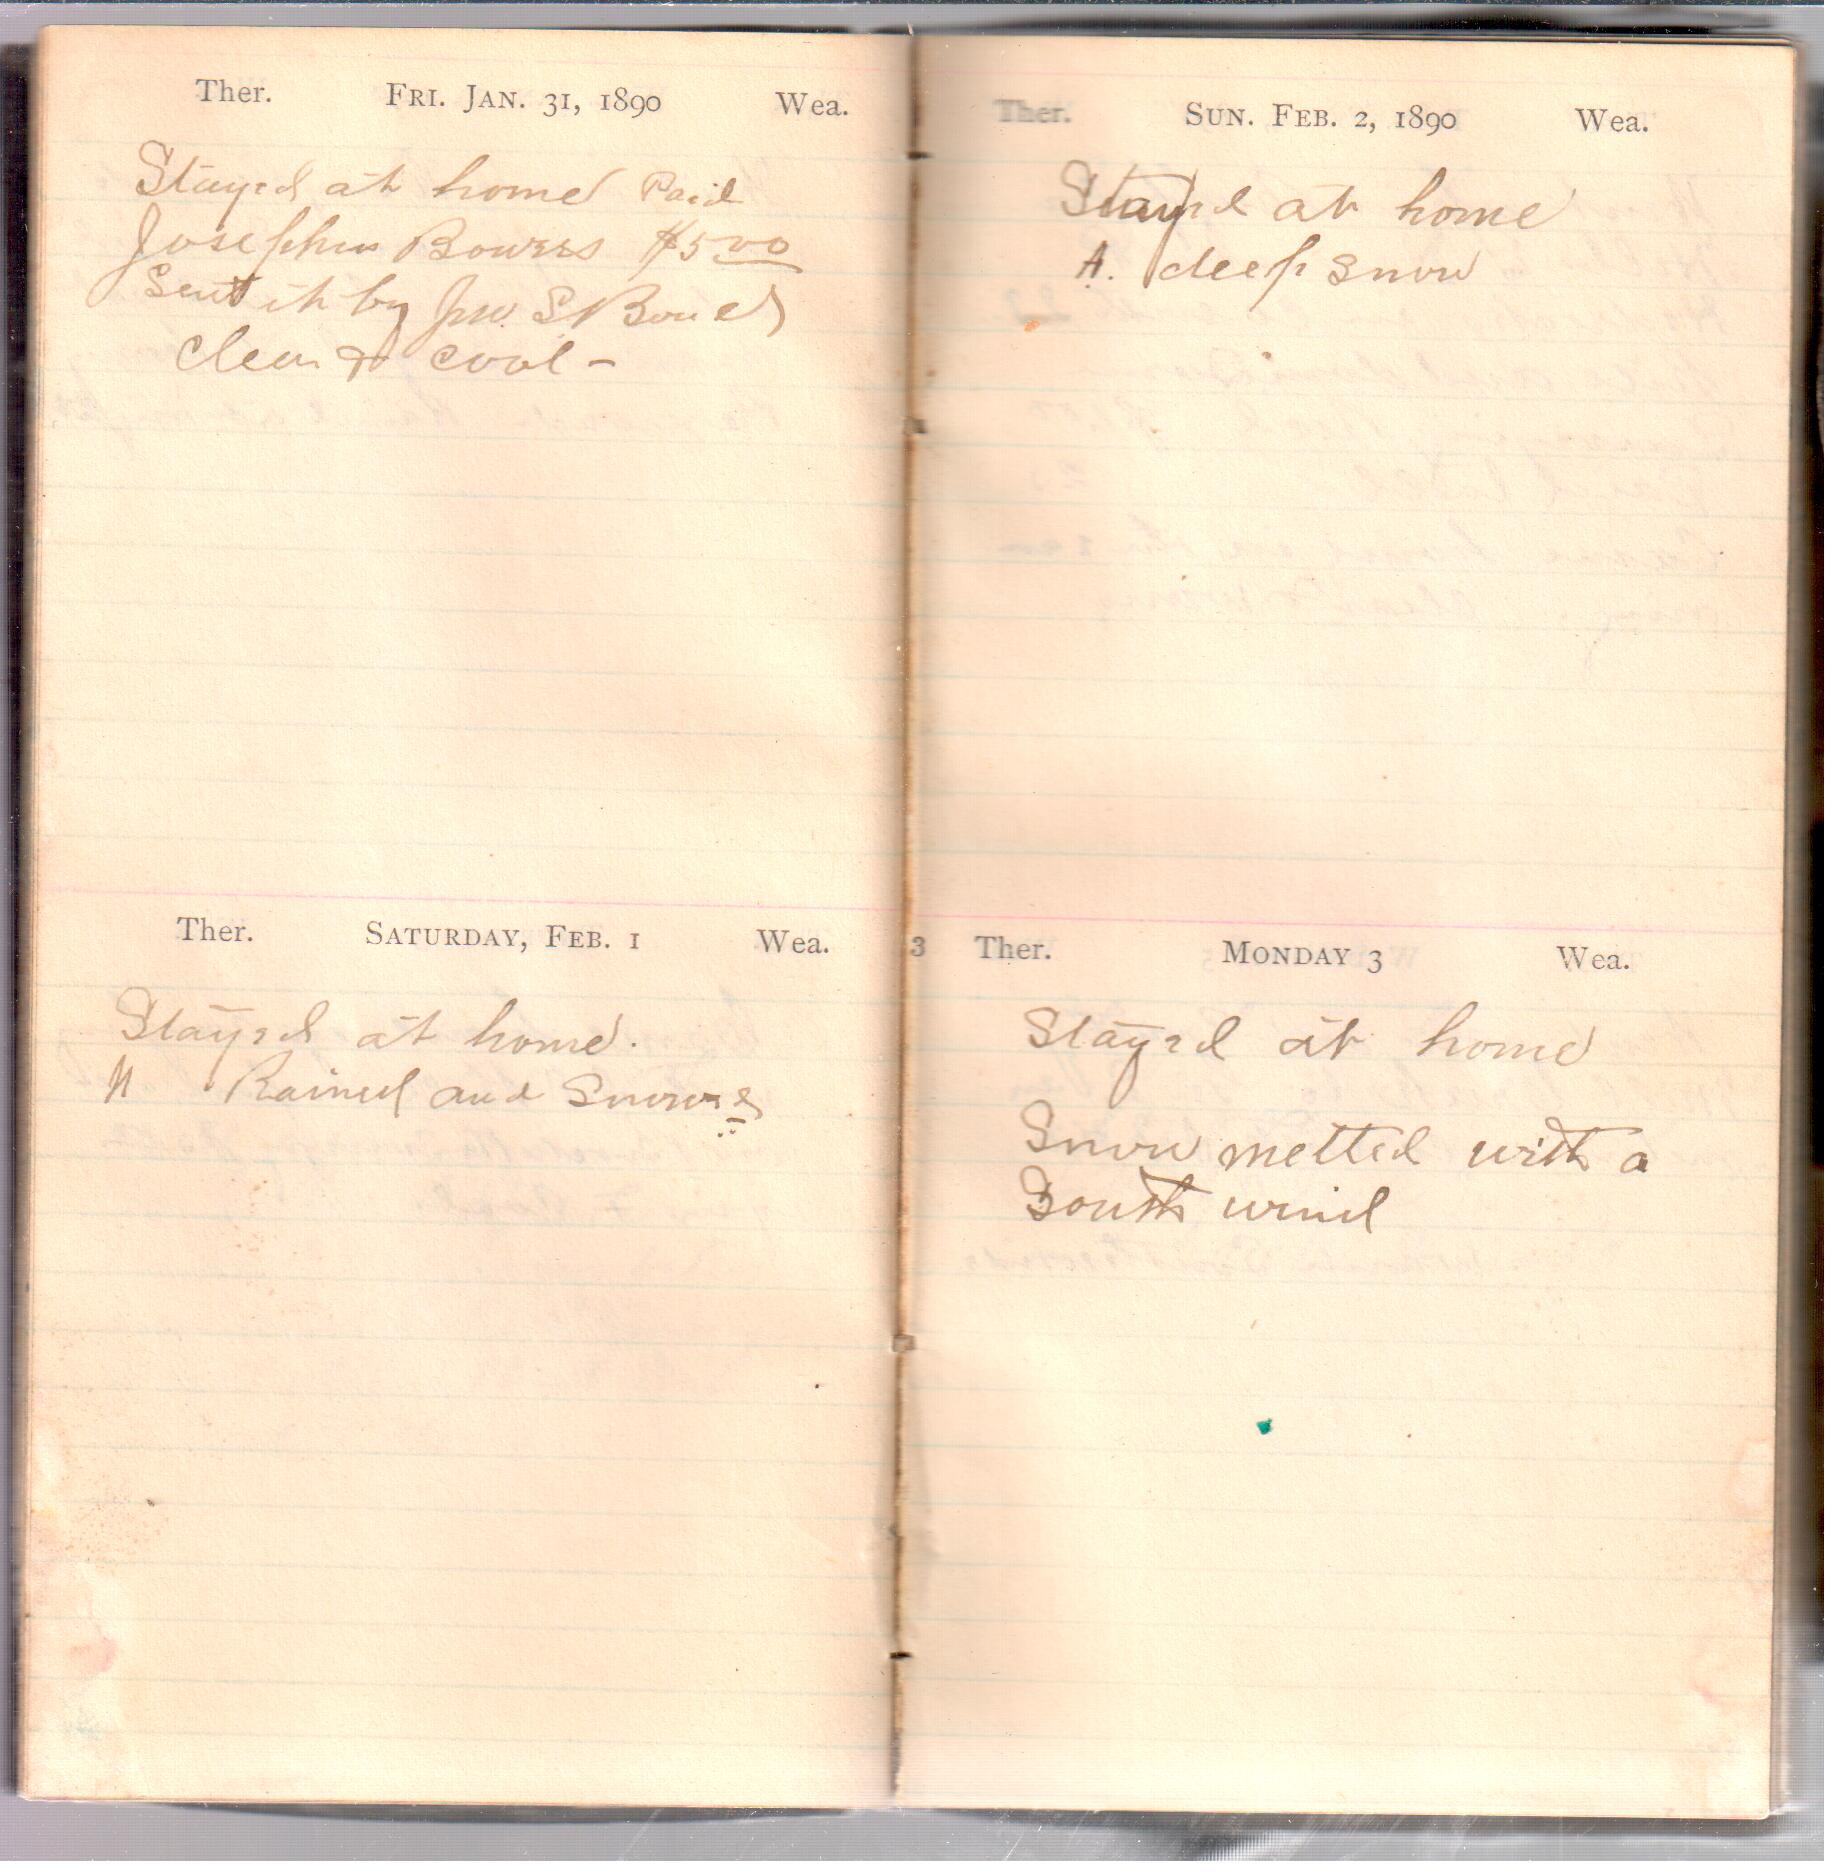 Ther. FRI. JAN. 31, 1890 Wea.
Stayed at home Paid
Josephus Bowers $5 00
Sent it by Jno S Bowers
Clear & cool –
Ther. SATURDAY, FEB. 1 Wea.
Stayed at home.
Rained and Snowed
Ther. SUN. FEB. 2, 1890 Wea.
Stayed at home
A. deep snow
3 Ther. MONDAY 3 Wea.
Stayed at home
Snow metted with a
South wind